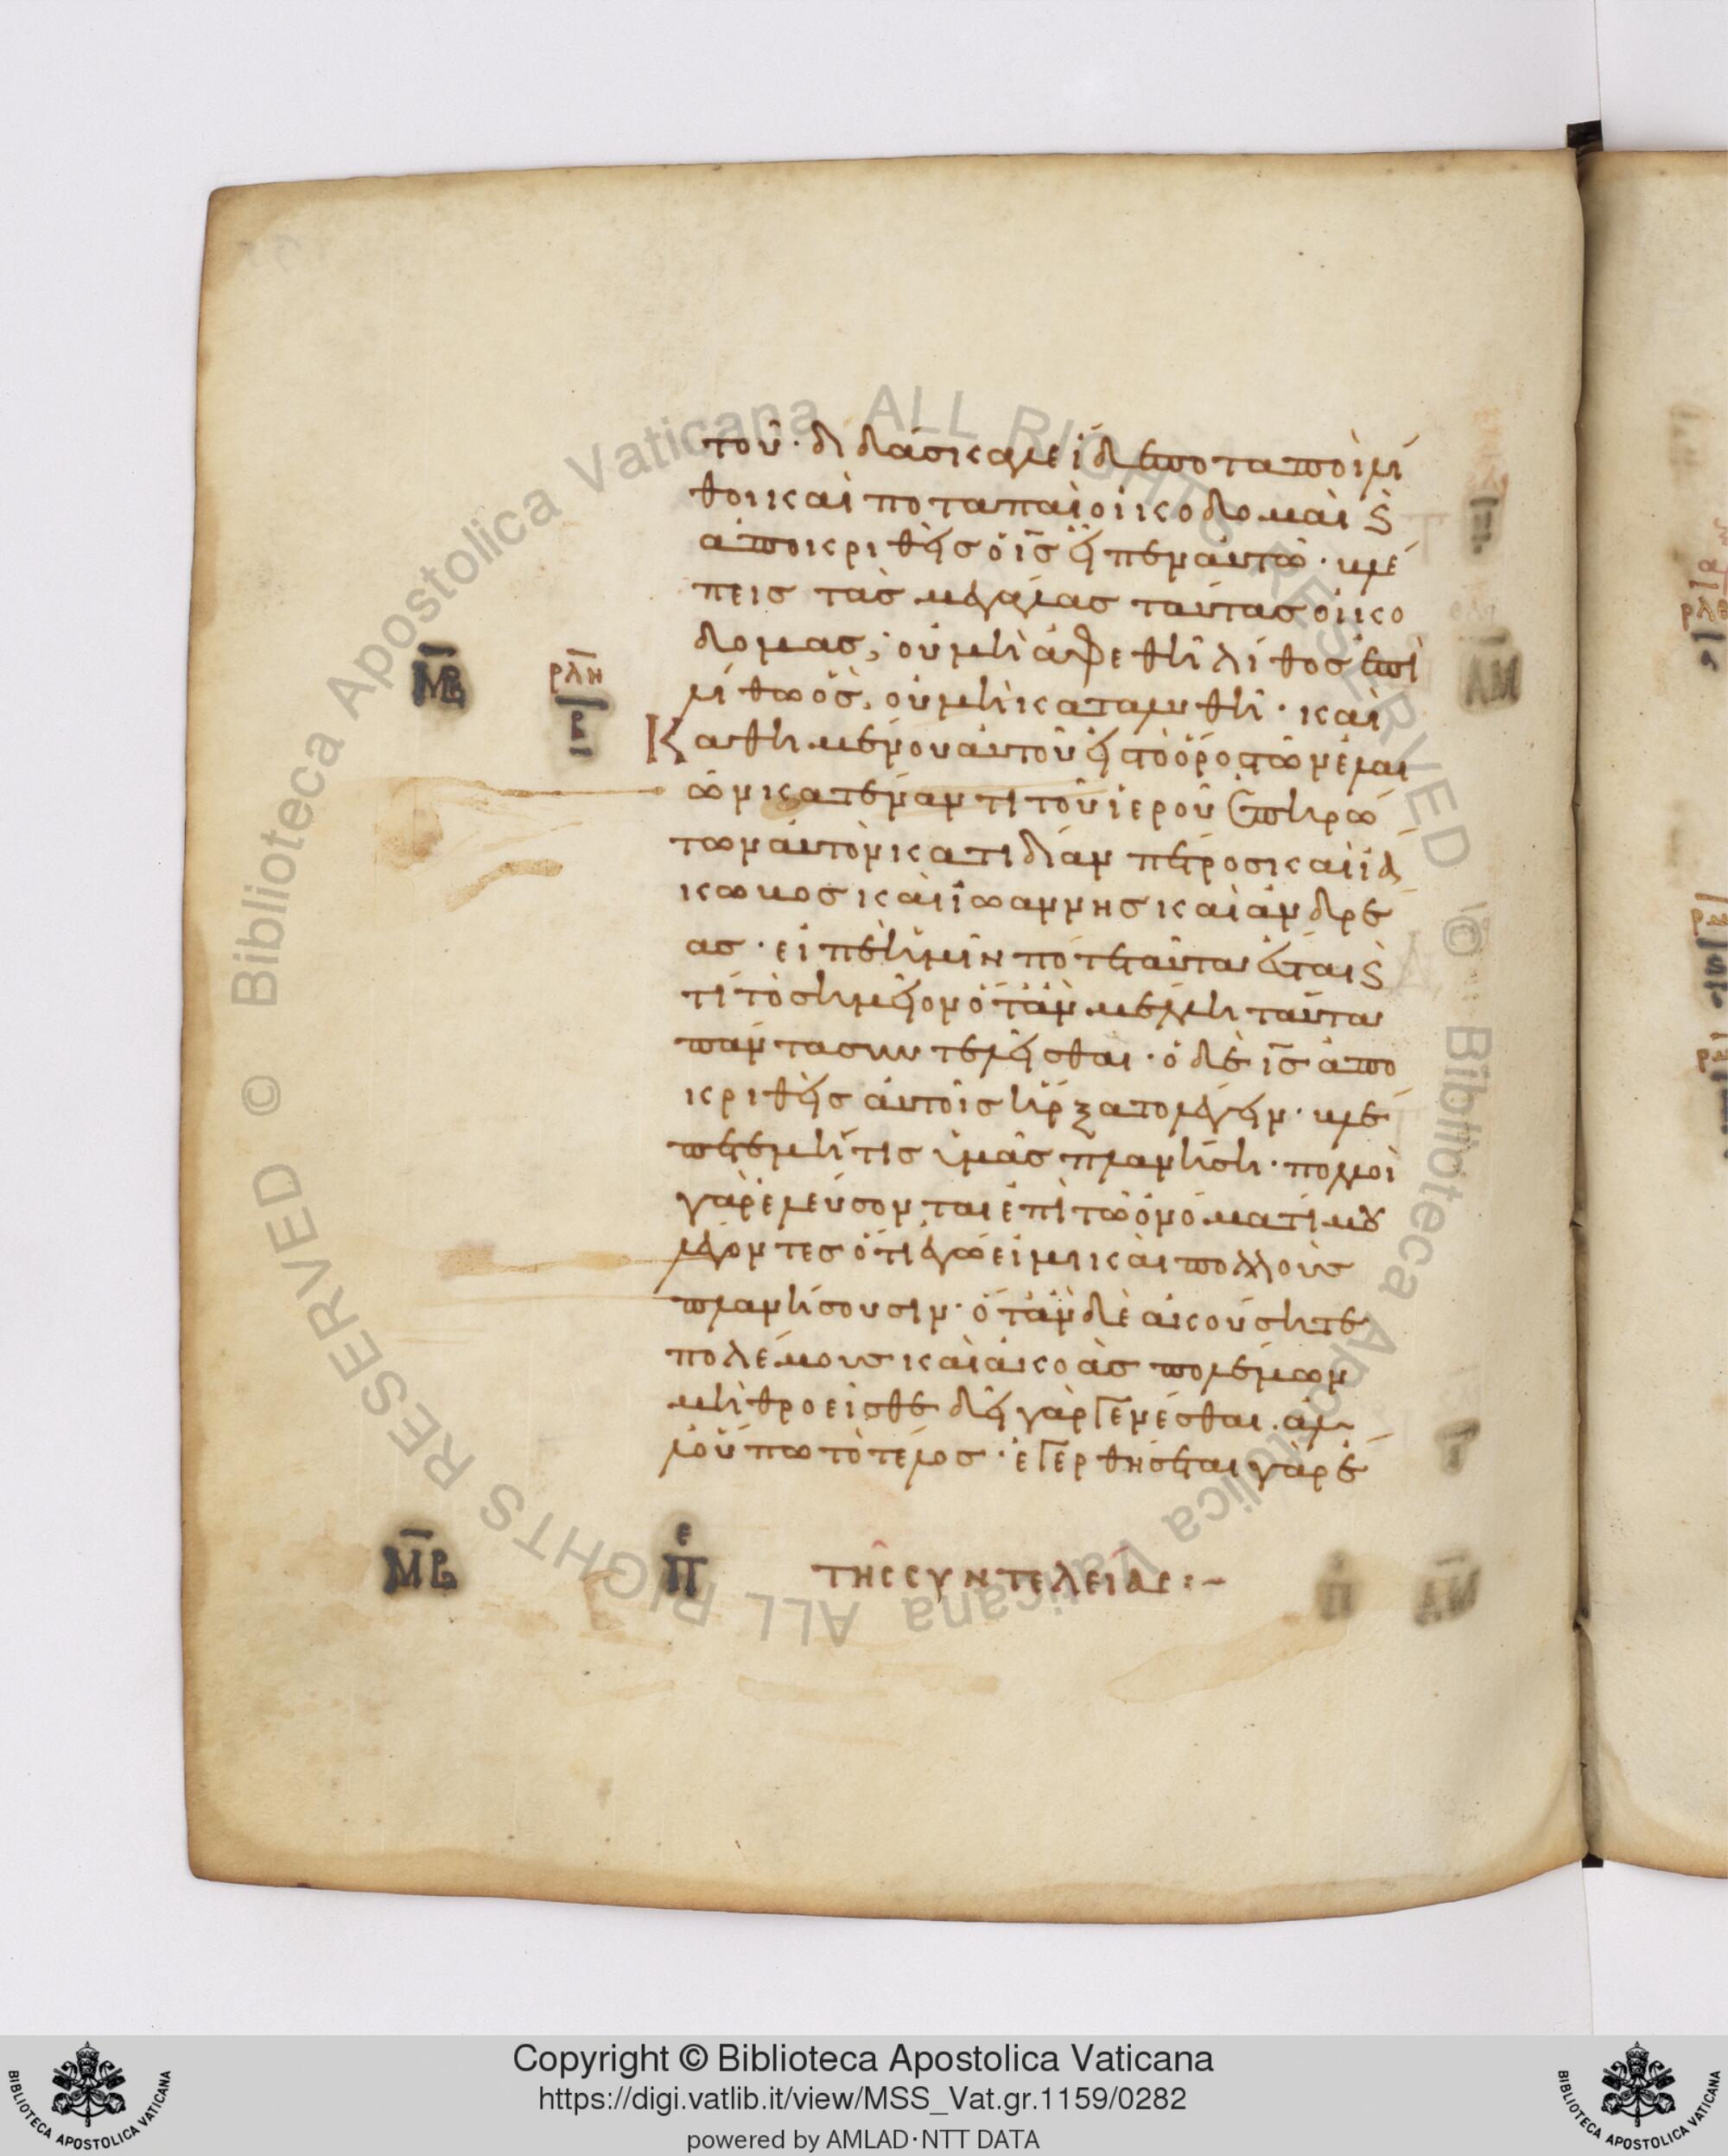 τοῦ· διδάσκαλε ἴδε ποταποὶ λί
θοι καὶ ποταπαὶ οἰκοδομαὶ ϛ
ἀποκριθεὶς ὁ ἰς εἶπεν αὐτῶ· βλέ
πεις τὰς μεγάλας ταύτας οἰκο
δομας; οὐ μὴ ἀφεθῆ λίθος ἐπὶ
λίθω ὃς, οὐ μὴ καταλυθῆ· καὶ
Καθημένου αὐτοῦ εἰς τὸ ὄρος τῶν ἐλαι
ῶν κατέναντι τοῦ ἱεροῦ ἐπηρώ
των αὐτὸν κατιδίαν πέτρος καὶ ἰά
κωβος καὶ ἰωάννης καὶ ἀνδρέ
ας· εἰπὲ ἡμῖν πότε ταῦτα ἔσται ϛ
τί τὸ σημεῖον ὅτὰν μέλλη ταῦτα
πάντα συντελεῖσθαι· ὁ δὲ ἰς ἀπο
κριθεὶς αὐτοῖς ἤρξατο λέγειν· βλέ
πετε μή τις ὑμᾶς πλανήση· πολλοὶ
γὰρ ἐλεύσονται ἐπὶ τῶ ὀνόματί μου
λέγοντες ὅτι ἐγώ εἰμι καὶ πολλοὺς
πλανήσουσιν· ὅτὰν δὲ ἀκούσητε
πολέμους καὶ ἀκοὰς πολέμων
μὴ θροεῖσθε δεῖ γὰρ γενέσθαι. ἀλ
λ οὔπω τὸ τέλος· ἐγερθήσεται γὰρ ἔ
ΜΒ
ρλη
β
ΜΒ
ε
π
τῆς συντελείας:~
Copyright © Biblioteca Apostolica Vaticana
https://digi.vatlib.it/view/MSS_Vat.gr.1159/0282
powered by AMLAD·NTT DATA
BIBLIOTECA APOSTOLICA VATICANA
BIBLIOTECA APOSTOLICA VATICANA
© Biblioteca Apostolica Vaticana ALL RIGHTS RESERVED
© Biblioteca Apostolica Vaticana ALL RIGHTS RESERVED